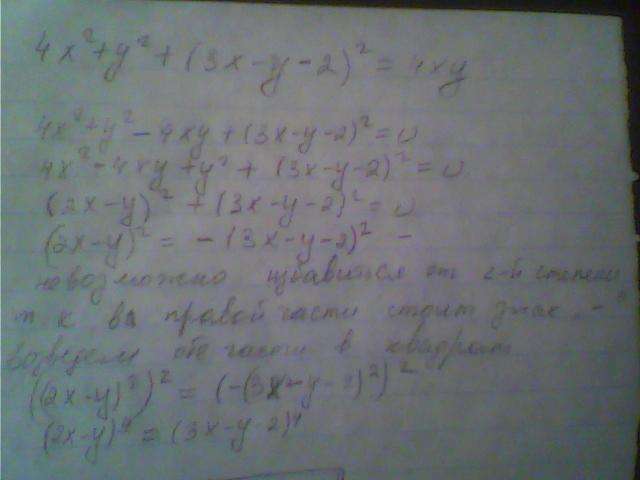 4x² + y² + (3x - y - 2)² = 4xy
4x² + y² - 4xy + (3x - y - 2)² = 0
4x² - 4xy + y² + (3x - y - 2)² = 0
(2x - y)² + (3x - y - 2)² = 0
(2x - y)² = - (3x - y - 2)² -
невозможно избавиться от 2-й степени
т.к в правой части стоит знак "-"
возведем обе части в квадрат
((2x - y)²)² = (-(3x - y - 2)²)²
(2x - y)⁴ = (3x - y - 2)⁴